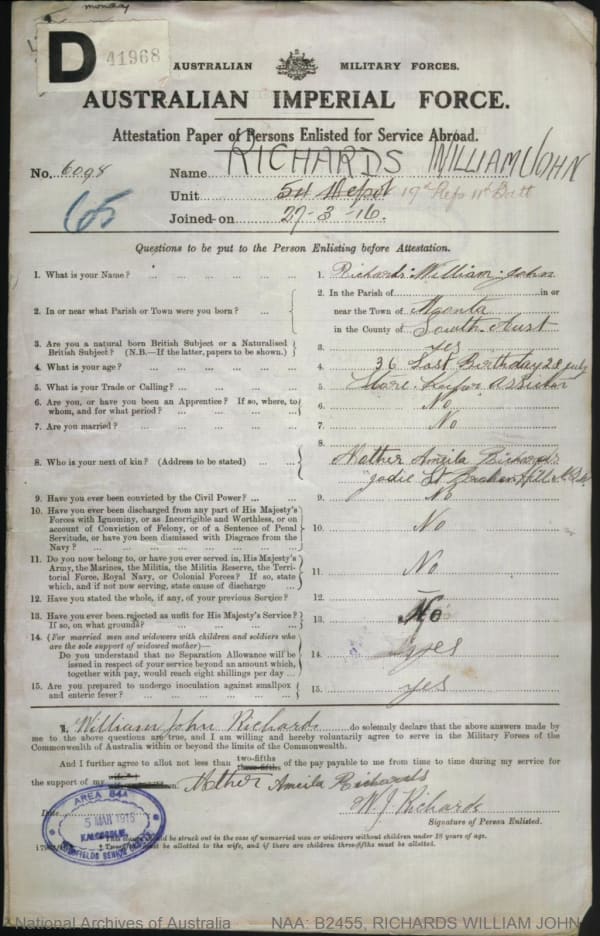 monday
D 41968
AUSTRALIAN MILITARY FORCES.
AUSTRALIAN IMPERIAL FORCE.
Attestation Paper of Persons Enlisted for Service Abroad.
No. 6098 Name RICHARDS WILLIAM JOHN
Unit 54 Depot 19th Reps 11th Batt
65
Joined on 27-3-16.
Questions to be put to the Person Enlisting before Attestation.
1. What is your Name? 1. Richards William John
2. In or near what Parish or Town were you born? 2. In the Parish of in or
near the Town of Moonta
in the County of South Aust
3. Are you a natural born British Subject or a Naturalised
British Subject? (N.B.—If the latter, papers to be shown.) 3. yes
4. What is your age? 4. 36 Last Birthday 28 July
5. What is your Trade or Calling? 5. Store Assistant
6. Are you, or have you been an Apprentice? If so, where, to
whom, and for what period? 6. No
7. Are you married? 7. No
8. Who is your next of kin? (Address to be stated) 8. Mother Ameila Richards
St Broken Hill N.S.W.
9. Have you ever been convicted by the Civil Power? 9. No
10. Have you ever been discharged from any part of His Majesty's
Forces with Ignominy, or as Incorrigible and Worthless, or on
account of Conviction of Felony, or of a Sentence of Penal
Servitude, or have you been dismissed with Disgrace from the
Navy? 10. No
11. Do you now belong to, or have you ever served in, His Majesty's
Army, the Marines, the Militia, the Militia Reserve, the Terri-
torial Force, Royal Navy, or Colonial Forces? If so, state
which, and if not now serving, state cause of discharge 11. No
12. Have you stated the whole, if any, of your previous Service? 12. —
13. Have you ever been rejected as unfit for His Majesty's Service?
If so, on what grounds? 13. No
14. (For married men and widowers with children and soldiers who
are the sole support of widowed mother)—
Do you understand that no Separation Allowance will be
issued in respect of your service beyond an amount which,
together with pay, would reach eight shillings per day 14. yes
15. Are you prepared to undergo inoculation against smallpox
and enteric fever? 15. yes
I, William John Richards do solemnly declare that the above answers made by
me to the above questions are true, and I am willing and hereby voluntarily agree to serve in the Military Forces of the
Commonwealth of Australia within or beyond the limits of the Commonwealth.
And I further agree to allot not less than two-fifths three-fifths of the pay payable to me from time to time during my service for
the support of my Mother Ameila Richards
W J Richards
Date
Signature of Person Enlisted.
AREA 84A
5 MAR 1916
KALGOORLIE
GOLDFIELDS
should be struck out in the case of unmarried men or widowers without children under 18 years of age.
must be allotted to the wife, and if there are children three-fifths must be allotted.
National Archives of Australia NAA: B2455, RICHARDS WILLIAM JOHN